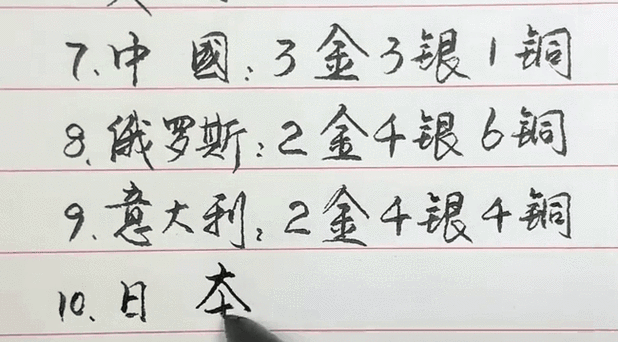 7、中國：3金3银1铜
8、俄罗斯：2金4银6铜
9、意大利：2金4银4铜
10、日本